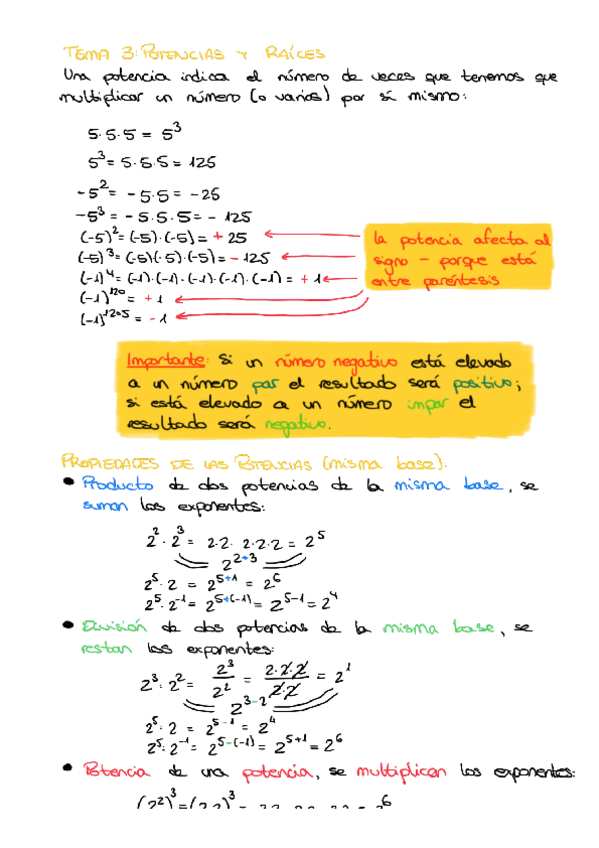 TEMA 3: POTENCIAS Y RAÍCES
Una potencia indica el número de veces que tenemos que
multiplicar un número (o varios) por sí mismo:
5·5·5 = 5³
5³ = 5·5·5 = 125
-5² = -5·5 = -25
-5³ = -5·5·5 = -125
(-5)² = (-5)·(-5) = +25
(-5)³ = (-5)(-5)·(-5) = -125
(-1)⁴ = (-1)·(-1)·(-1)·(-1)·(-1) = +1
(-1)¹²⁰ = +1
(-1)¹²⁰⁵ = -1
la potencia afecta al
signo - porque está
entre paréntesis
Importante: Si un número negativo está elevado
a un número par el resultado será positivo;
si está elevado a un número impar el
resultado será negativo.
PROPIEDADES DE LAS POTENCIAS (misma base):
• Producto de dos potencias de la misma base, se
suman los exponentes:
2²·2³ = 2·2·2·2·2 = 2⁵
2²⁺³
2⁵·2 = 2⁵⁺¹ = 2⁶
2⁵·2⁻¹ = 2⁵⁺⁽⁻¹⁾ = 2⁵⁻¹ = 2⁴
• División de dos potencias de la misma base, se
restan los exponentes:
2³:2² = 2³/2² = 2·2·2/2·2 = 2¹
2³⁻²
2⁵:2 = 2⁵⁻¹ = 2⁴
2⁵:2⁻¹ = 2⁵⁻⁽⁻¹⁾ = 2⁵⁺¹ = 2⁶
• Potencia de una potencia, se multiplican los exponentes:
(2²)³ = (2·2)³ =